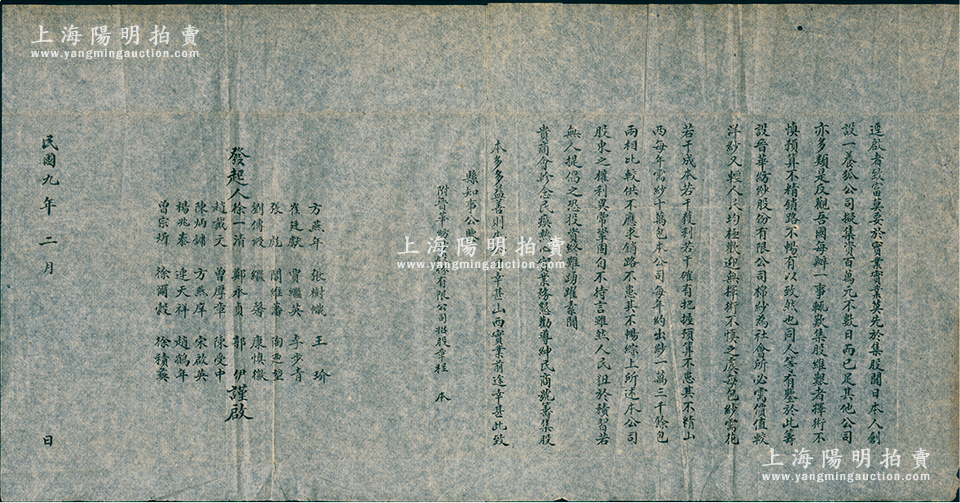 逕啟者致富莫妥於實業實業莫先於集股聞日本人創
設一養狐公司擬集資百萬元不數日而已足其他公司
亦多類是反觀吾國每辦一事輒歎集股維艱者擇術不
慎預算不精銷路不暢有以致然也同人等有鑒於此籌
設晉華紡紗股份有限公司棉紗為社會所必需價值較
洋紗又輕人民均極歡迎無擇術不慎之虞每包紗需花
若干成本若干獲利若干確有把握預算不患其不精山
西每年需紗十萬包本公司每年約出紗一萬三千餘包
兩相比較供不應求銷路不患其不暢綜上所述本公司
股東之權利異常鞏固自不待言雖然人民狃於積習若
無人提倡之恐投資終難踴躍素聞
貴商會於全民
業務懇勸導紳民商號籌集股
本多多益善則
幸甚山西實業前途幸甚此致
縣知事公
附晉華紡
有限公司招股章程 本
方燕年 張樹幟 王 瑜
崔廷獻 賈繼英 李步青
張 閻維藩
劉 康慎徽
發起人徐一清 鄭永貞 郭 伊謹啟
趙戴文 曾厚章 陳受中
陳炳鏞 方燕庠 宋啟英
楊兆泰 連天祥 趙鶴年
曾宗圻 徐爾穀 徐積
民國九年 二 月 日
上海陽明拍賣
www.yangmingauction.com
上海陽明拍賣
www.yangmingauction.com
上海陽明拍賣
www.yangmingauction.com